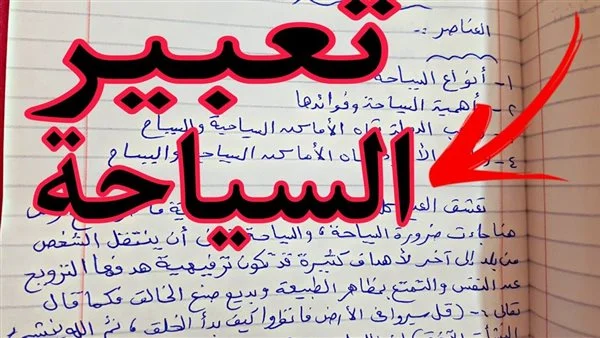 العناصر :-
تعبير
السياحة
١- أنواع السياحة
٢- أهمية السياحة وفوائدها
الدولة تجاه الأماكن السياحية والسياح
٤- الأماكن السياحية والسياح
تعشق العين
هنا جاءت ضرورة السياحة، والسياحة أن ينتقل الشخص
من بلد إلى آخر لأهداف كثيرة قد تكون ترفيهية هدفها الترويح
عن النفس والتمتع بمظاهر الطبيعة وبديع صنع الخالق فكما قال
تعالى :- (قل سيروا في الأرض فانظروا كيف بدأ الخلق، ثم الله ينشئ